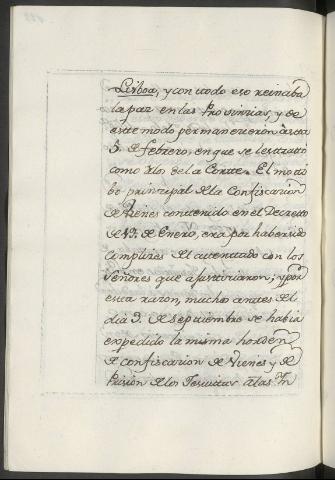 Lisboa, y con todo eso reinaba
la paz en las Provincias, y de
este modo permanecieron hasta
5. de febrero, en que se les trató
como Rèos de la Corte. El moti
bo principal de la Confiscacion
de Vienes contenido en el Decreto
de 19. de Enero, era por haber sido
complizes del atentado con los
Señores que ajusticiaron; y por
esta razon, mucho antes del
dia 3. de septiembre se havia
expedido la misma horden
de confiscacion de Vienes y de
Prision de los Jesuitas a las